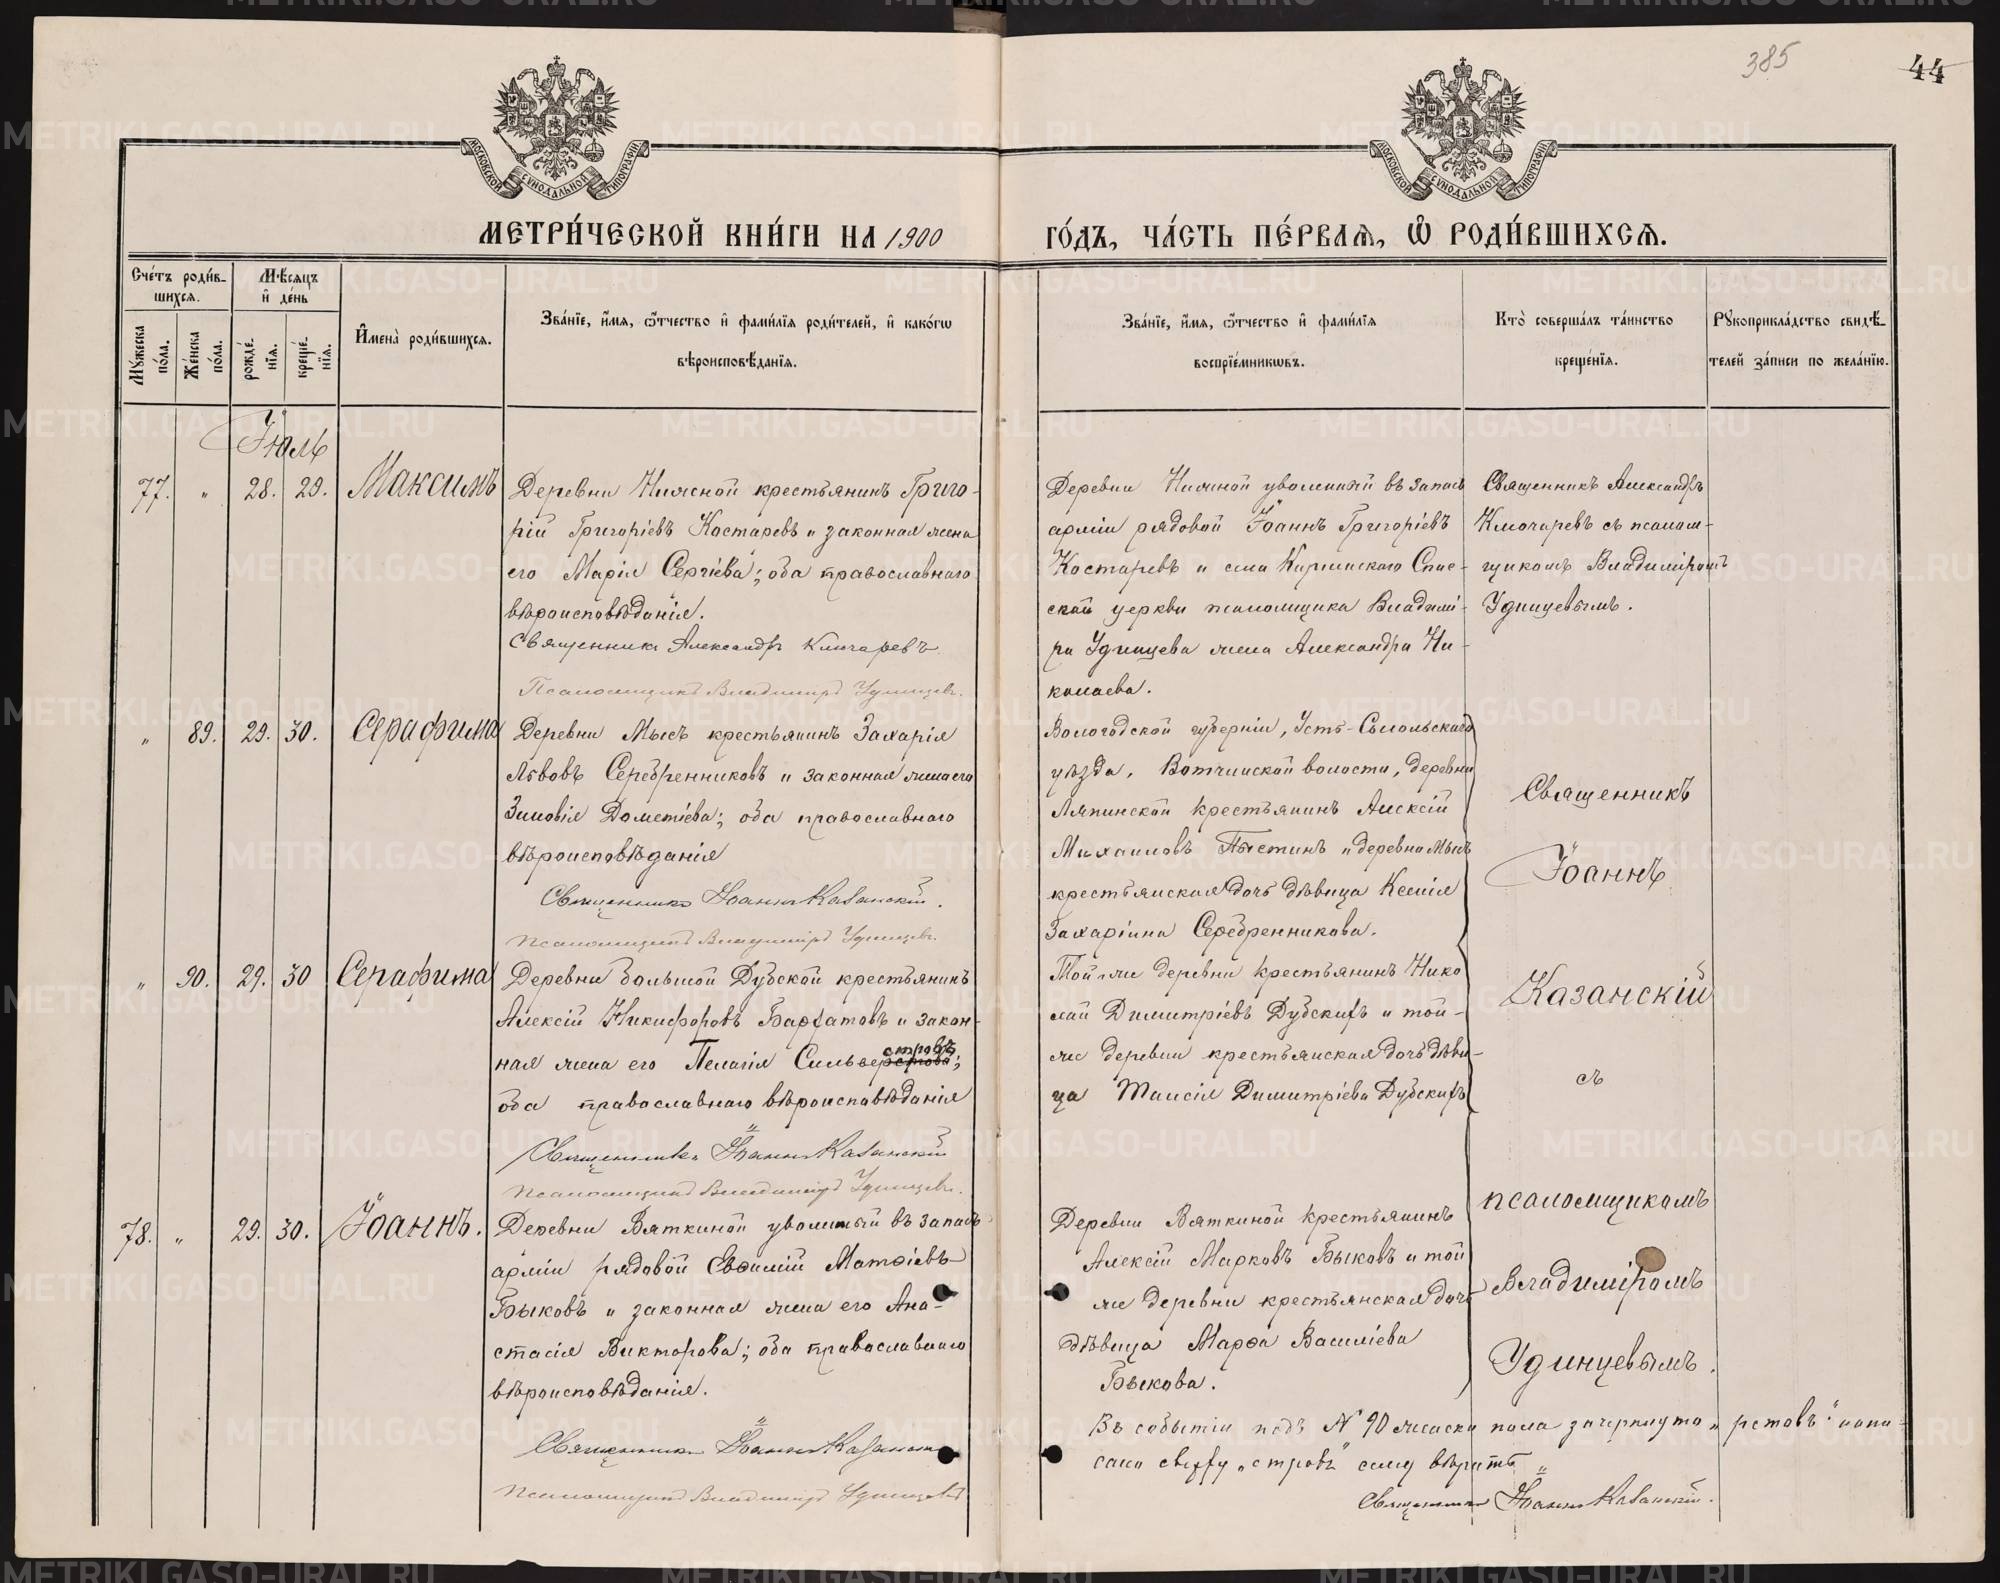 385
44
МОСКОВСКОЙ СѴНОДАЛЬНОЙ ТИПОГРАФІИ
МОСКОВСКОЙ СѴНОДАЛЬНОЙ ТИПОГРАФІИ
МЕТРИ́ЧЕСКОЙ КНИ́ГИ НА 1900
ГО́ДЪ, ЧА́СТЬ ПЕ́РВАЯ, Ѽ РОДИ́ВШИХСЯ.
Сче́тъ роди́в-
шихся.
Мѣсяцъ
и҆ де́нь
Мꙋ́жеска
по́ла.
Же́нска
по́ла.
рожде́-
нїя.
креще́-
нїя.
И҆мена̀ роди́вшихся.
Зва́нїе, и҆́мя, ѻ҆́тчество и҆ фами́лїя роди́телей, и҆ како́гѡ
вѣроисповѣ́данїя.
Зва́нїе, и҆́мя, ѻ҆́тчество и҆ фами́лїя
воспрїе́мникѡвъ.
Кто̀ соверша́лъ та́инство
креще́нїя.
Рꙋкоприкла́дство свидѣ́-
телей за́писи по жела́нїю.
Іюль
77. „ 28. 29. Максимъ
Деревни Нижной крестьянинъ Григо-
рій Григоріевъ Костаревъ и законная жена
его Марія Сергіева; оба православнаго
вѣроисповѣданія.
Священникъ Александръ Ключаревъ
Псаломщикъ Владиміръ Удинцевъ.
Деревни Нижной уволенный въ запасъ
арміи рядовой Іоаннъ Григоріевъ
Костаревъ и села Спас-
ской церкви псаломщика Владимі-
ра Удинцева жена Александра Ни-
колаева.
Священникъ Александръ
Ключаревъ съ псалом-
щикомъ Владиміромъ
Удинцевымъ.
„ 89. 29. 30. Серафима
Деревни Мысъ крестьянинъ Захарія
Львовъ Серебренниковъ и законная жена его
Зиновія Дометіева; оба православнаго
вѣроисповѣданія
Священникъ Іоаннъ Казанскій.
Псаломщикъ Владиміръ Удинцевъ.
Вологодской губерніи, Усть-Сысольскаго
уѣзда, Вотчинской волости, деревни
Ляпинской крестьянинъ Алексій
Михаиловъ Пыстинъ и деревни Мысъ
крестьянская дочь дѣвица Ксенія
Захаріина Серебренникова.
„ 90. 29. 30 Серафима
Деревни Большой Дубской крестьянинъ
Алексій Никифоровъ Бархатовъ и закон-
ная жена его Пелагія Сильверстова; стровъ
оба православнаго вѣроисповѣданія
Священникъ Іоаннъ Казанскій
Псаломщикъ Владиміръ Удинцевъ.
Той-же деревни крестьянинъ Нико
лай Димитріевъ Дубскихъ и той-
же деревни крестьянская дочь дѣви-
ца Таисія Димитріева Дубскихъ
78. „ 29. 30. Іоаннъ.
Деревни Вяткиной уволеный въ запасъ
арміи рядовой Евѳимій Матѳіевъ
Быковъ и законная жена его Ана-
стасія Викторова; оба православнаго
вѣроисповѣданія.
Священникъ Іоаннъ Казанскій
Псаломщикъ Владиміръ Удинцевъ
Деревни Вяткиной крестьянинъ
Алексій Марковъ Быковъ и той
же деревни крестьянская дочь
дѣвица Марѳа Василіева
Быкова.
Священникъ
Іоаннъ
Казанскій
съ
псаломщикомъ
Владиміромъ
Удинцевымъ.
Въ событіи подъ № 90 женска пола зачеркнуто „рстовъ“ напи-
сано сверху „стровъ“ сему вѣрить
Священникъ Іоаннъ Казанскій.
METRIKI.GASO-URAL.RU